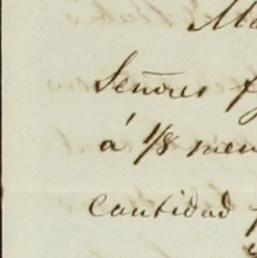 Señores
á 1/8 men
cantidad